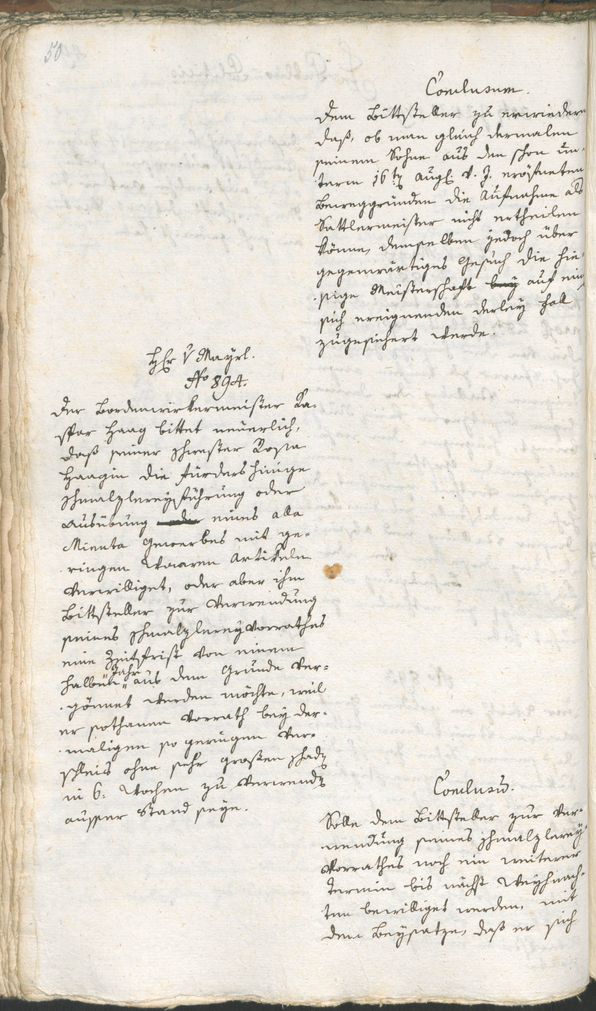 50
Conclusum.
Dem Bittsteller zu erwiedern
daß, ob man gleich dermalen
seinem Sohne aus den schon un-
term 16ten Augs v. J. eröfneten
Beweggründen die Aufnahme als
Sattlermeister nicht ertheilen
könne, demselben jedoch über
gegenwärtiges Gesuch die hie-
sige Meisterschaft bey auf ein
sich ereignenden derley Fall
zugesichert werde.
Hr v Mayrl.
No 894.
Der Bordenwirkermeister Ka-
spar Haag bittet neuerlich,
daß seiner Schwester Rosina
Haagin die fürdershinige
Schmalzlereyführung oder
Ausübung eines alla
Minuta Gewerbes mit ge-
ringen Waaren Artikeln
verwilliget, oder aber ihm
Bittsteller zur Verwendung
seines Schmalzlereyvorrathes
eine Zeitfrist von einem
halben Jahr aus dem Grunde ver-
gönnet werden möchte, weil
er sothanen Vorrath bey der-
maligen so geringen Ver-
schleis ohne sehr großen Schadn
in 6. Wochen zu verwendn
ausser Stand seye.
Conclusum.
Solle dem Bittsteller zur Ver-
wendung seines Schmalzlerey-
Vorrathes noch ein weiterer
Termin bis nächst Weyhnach-
ten bewilliget werden, mit
dem Beysatze, daß er sich